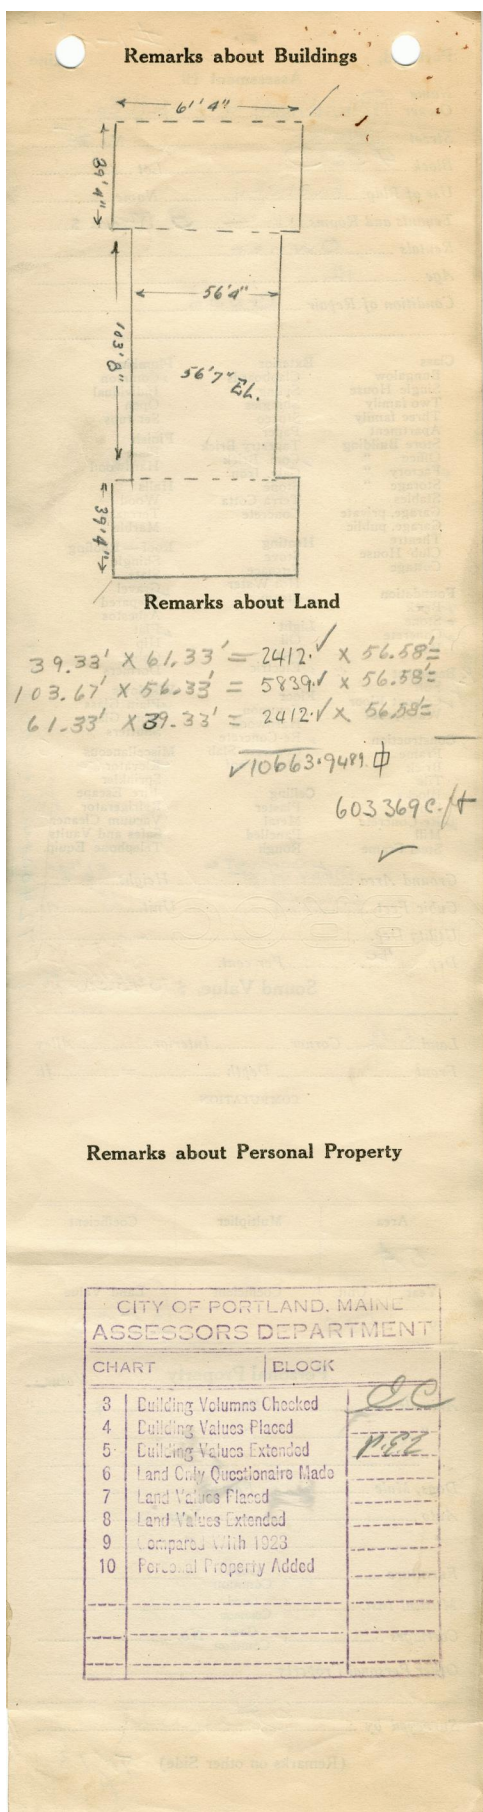 Remarks about Buildings
61'4"
39'4"
56'4"
103'8"
56'7" EL.
39'4"
Remarks about Land
39.33' X 61.33' = 2412.✓ X 56.58'=
103.67' X 56.33' = 5839.✓ X 56.58'=
61.33' X 39.33' = 2412.✓ X 56.58'=
✓10663.9489.
603369 c.ft
✓
Remarks about Personal Property
CITY OF PORTLAND, MAINE
ASSESSORS DEPARTMENT
CHART BLOCK
3 Building Volumns Checked
4 Building Values Placed
5 Building Values Extended
6 Land Only Questionaire Made
7 Land Values Placed
8 Land Values Extended
9 Compared With 1923
10 Personal Property Added